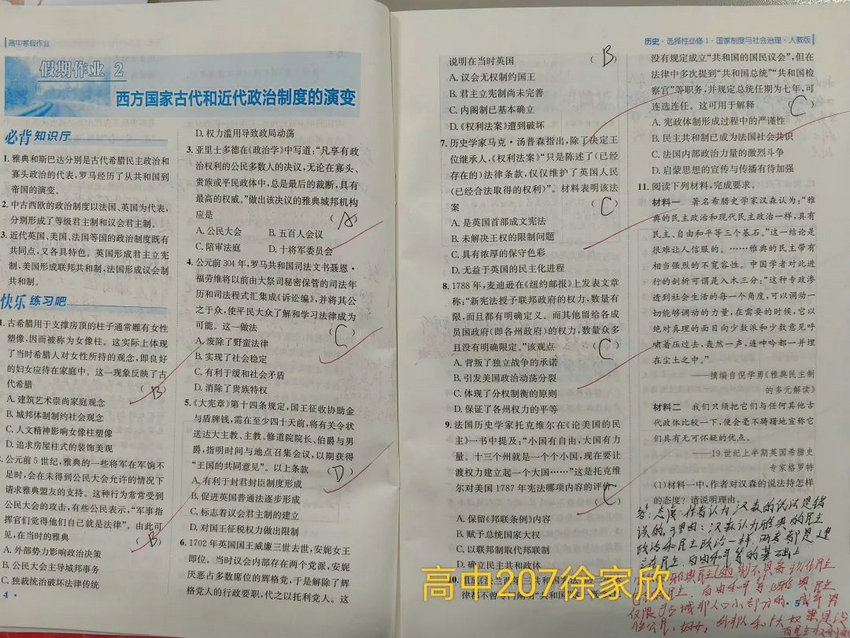 高中寒假作业
假期作业 2
西方国家古代和近代政治制度的演变
必背 知识厅
1. 雅典和斯巴达分别是古代希腊民主政治和
寡头政治的代表,罗马经历了从共和国到
帝国的演变。
2. 中古西欧的政治制度以法国、英国为代表,
分别形成了等级君主制和议会君主制。
3. 近代英国、美国、法国等国的政治制度既有
共同点,又各具特色。英国形成君主立宪
制,美国形成联邦共和制,法国形成议会制
共和制。
快乐 练习吧
1. 古希腊用于支撑房顶的柱子通常雕有女性
塑像,因而被称为女像柱。这实际上体现
了当时希腊人对女性所持的观念,即良好
的妇女应待在家庭中。这一现象反映了古
代希腊 (B)
A. 建筑艺术崇尚家庭观念
B. 城邦体制制约社会观念
C. 人文精神影响女像柱塑像
D. 追求房屋柱式的装饰美观
公元前5世纪,雅典的一些将军在军饷不
足时,会在未得到公民大会允许的情况下
请求雅典盟友的支持。这种行为常常受到
公民大会的攻击,有些公民表示,“军事指
挥官们觉得他们自己就是法律”。由此可
见,在当时的雅典 (B)
A. 外部势力影响政治决策
B. 公民大会主导城邦事务
C. 独裁统治破坏法律传统
4
D. 权力滥用导致政局动荡
3. 亚里士多德在《政治学》中写道:“凡享有政
治权利的公民多数人的决议,无论在寡头、
贵族或平民政体中,总是最后的裁断,具有
最高的权威。”做出该决议的雅典城邦机构
应是 (A)
A. 公民大会 B. 五百人会议
C. 陪审法庭 D. 十将军委员会
4. 公元前304年,罗马共和国司法文书聂恩·
福劳维将以前由大祭司秘密保管的司法年
历和司法程式汇集成《诉讼编》,并将其公
之于众,使平民大众了解和学习法律成为
可能。这一做法 (C)
A. 废除了野蛮法律
B. 实现了社会稳定
C. 有利于缓和社会矛盾
D. 消除了贵族特权
5. 《大宪章》第十四条规定,国王征收协助金
与盾牌钱,需在至少四十天前,将有关令状
送达大主教、主教、修道院院长、伯爵与男
爵,指明时间与地点召集会议,以期获得
“王国的共同意见”。以上条款 (D)
A. 有利于封君封臣制度形成
B. 促进英国普通法逐步形成
C. 标志着议会君主制的建立
D. 对国王征税权力做出限制
6. 1702年英国国王威廉三世去世,安妮女王
即位。当时议会内部存在两个党派,安妮
厌恶占多数席位的辉格党,于是解除了辉
格党人的行政要职,代之以托利党人。这
历史·选择性必修1·国家制度与社会治理·人教版
说明在当时英国 (B)
A. 议会无权制约国王
B. 君主立宪制尚未完善
C. 内阁制已基本确立
D. 《权利法案》遭到破坏
7. 历史学家马克·汤普森指出,除了决定王
位继承人,《权利法案》“只是陈述了(已经
存在的)法律条款,仅仅维护了英国人民
(已经合法取得的权利)”。材料表明该法
案 (C)
A. 是英国首部成文宪法
B. 未解决王权的限制问题
C. 具有浓厚的保守色彩
D. 无益于英国的民主化进程
8. 1788年,麦迪逊在《纽约邮报》上发表文章
称:“新宪法授予联邦政府的权力,数量有
限,而且都有明确定义。而其他留给各成
员国政府(即各州政府)的权力,数量众多
且没有明确限定。”该观点 (C)
A. 背叛了独立战争的承诺
B. 引发美国政治动荡分裂
C. 体现了分权制衡的原则
D. 保证了各州权力的平等
9. 法国历史学家托克维尔在《论美国的民
主》一书中提及,“小国有自由,大国有力
量。十三个州就是一个个小国,现在要让
渡权力建立起一个大国……”这是托克维
尔对美国1787年宪法哪项内容的评价
(C)
A. 保留《邦联条例》内容
B. 赋予总统国家大权
C. 以联邦制取代邦联制
D. 确立民主共和政体
高中207徐家欣
没有规定成立“共和国的国民议会”,但在
法律中多次提到“共和国总统”“共和国检
察官”等职务,并规定总统任期为七年,可
连选连任。这可用于解释 (C)
A. 宪政体制形成过程中的严谨性
B. 民主共和制已成为法国社会共识
C. 法国内部政治力量的激烈斗争
D. 启蒙思想的宣传与传播有待加强
11. 阅读下列材料,完成要求。
材料一 著名希腊史学家汉森认为:“雅
典的民主政治和现代民主政治一样,具有
民主、自由和平等三个基石。”这一结论是
很难让人信服的。……雅典的民主带有
相当强烈的不宽容性。中国学者对此进
行的剖析可谓是入木三分:“这种专政渗
透到社会生活的每一个角度,可以调动一
切能够调动的力量,在需要的时候,它以
绝对真理的面目向少数派和少数意见呼
啸着压过去,轰然一声,连呻吟都一并埋
在尘土之中。”
——摘编自倪学勇《雅典民主制
的多元解读》
材料二 我们只须把它们与任何其他古
代政体比较一下,便会毫不踌躇地宣称它
们具有无可怀疑的优点。
——19世纪上半期英国希腊史
专家格罗特
(1)材料一中,作者对汉森的说法持怎样
的态度?请说明理由。
答:态度:作者认为汉森的说法是错
误的。理由:汉森认为雅典的民主
政治和民主政治一样,两者都是建